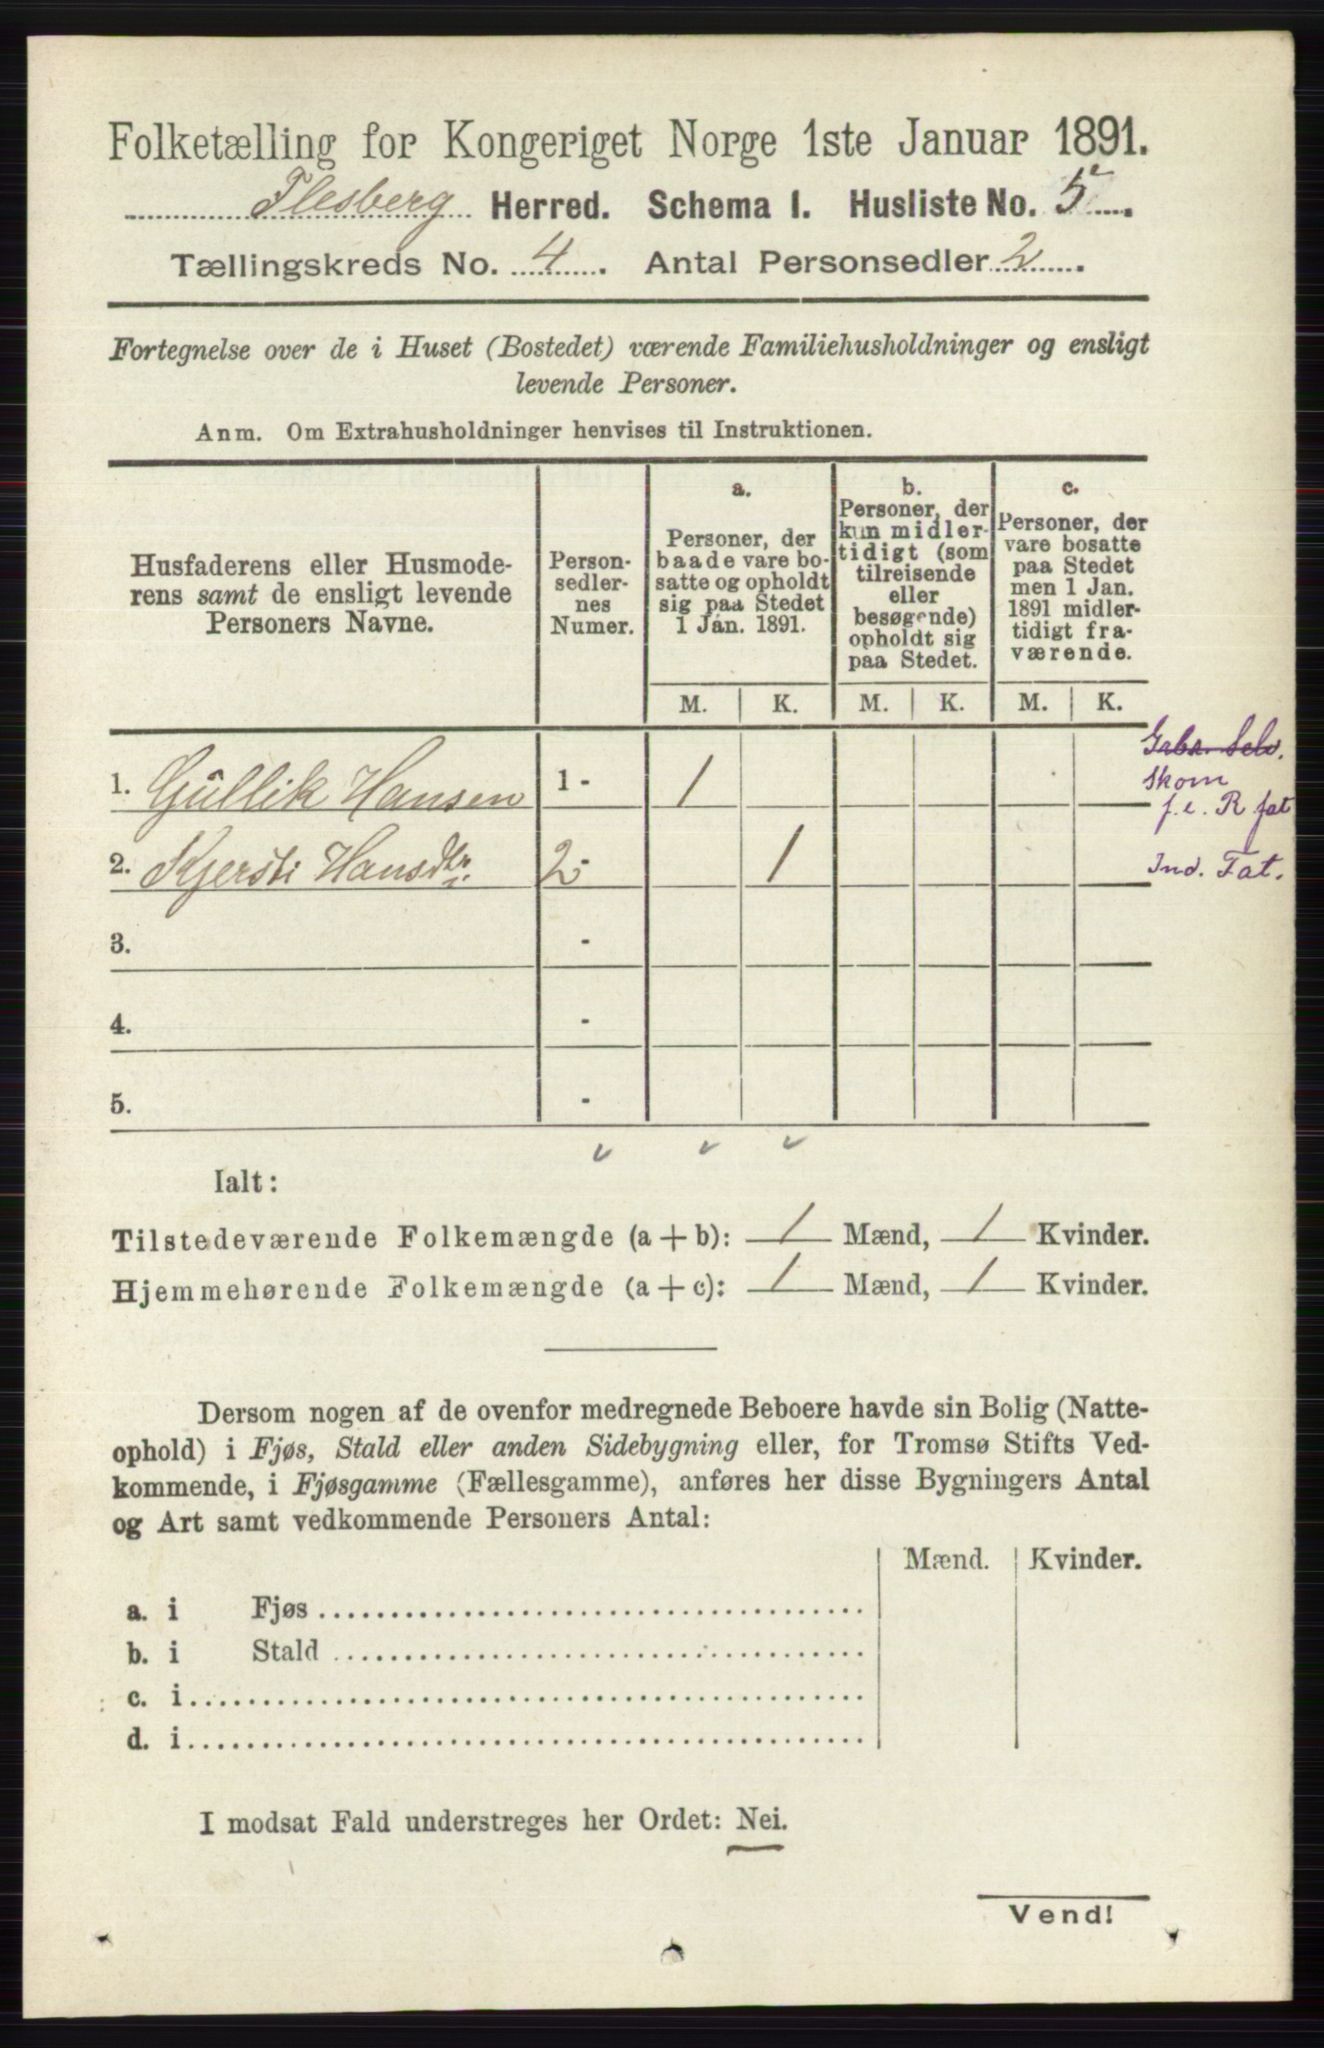 Folketælling for Kongeriget Norge 1ste Januar 1891.
Flesberg Herred. Schema I. Husliste No. 5.
Tællingskreds No. 4. Antal Personsedler 2.
Fortegnelse over de i Huset (Bostedet) værende Familiehusholdninger og ensligt
levende Personer.
Anm. Om Extrahusholdninger henvises til Instruktionen.
Husfaderens eller Husmode-
rens samt de ensligt levende
Personers Navne.
Person-
sedler-
nes
Numer.
a.
Personer, der
baade vare bo-
satte og opholdt
sig paa Stedet
1 Jan. 1891.
b.
Personer, der
kun midler-
tidigt (som
tilreisende
eller
besøgende)
opholdt sig
paa Stedet.
c.
Personer, der
vare bosatte
paa Stedet
men 1 Jan.
1891 midler-
tidigt fra-
værende.
M. K. M. K. M. K.
1. Gullik Hansen 1 - 1
Skom
f. e. R fat
2. Kjersti Hansdtr. 2 - 1 Ind. Fat.
3. -
4. -
5. -
Ialt:
Tilstedeværende Folkemængde (a + b): 1 Mænd, 1 Kvinder.
Hjemmehørende Folkemængde (a + c): 1 Mænd, 1 Kvinder.
Dersom nogen af de ovenfor medregnede Beboere havde sin Bolig (Natte-
ophold) i Fjøs, Stald eller anden Sidebygning eller, for Tromsø Stifts Ved-
kommende, i Fjøsgamme (Fællesgamme), anføres her disse Bygningers Antal
og Art samt vedkommende Personers Antal:
Mænd. Kvinder.
a. i Fjøs
b. i Stald
c. i
d. i
I modsat Fald understreges her Ordet: Nei.
Vend!